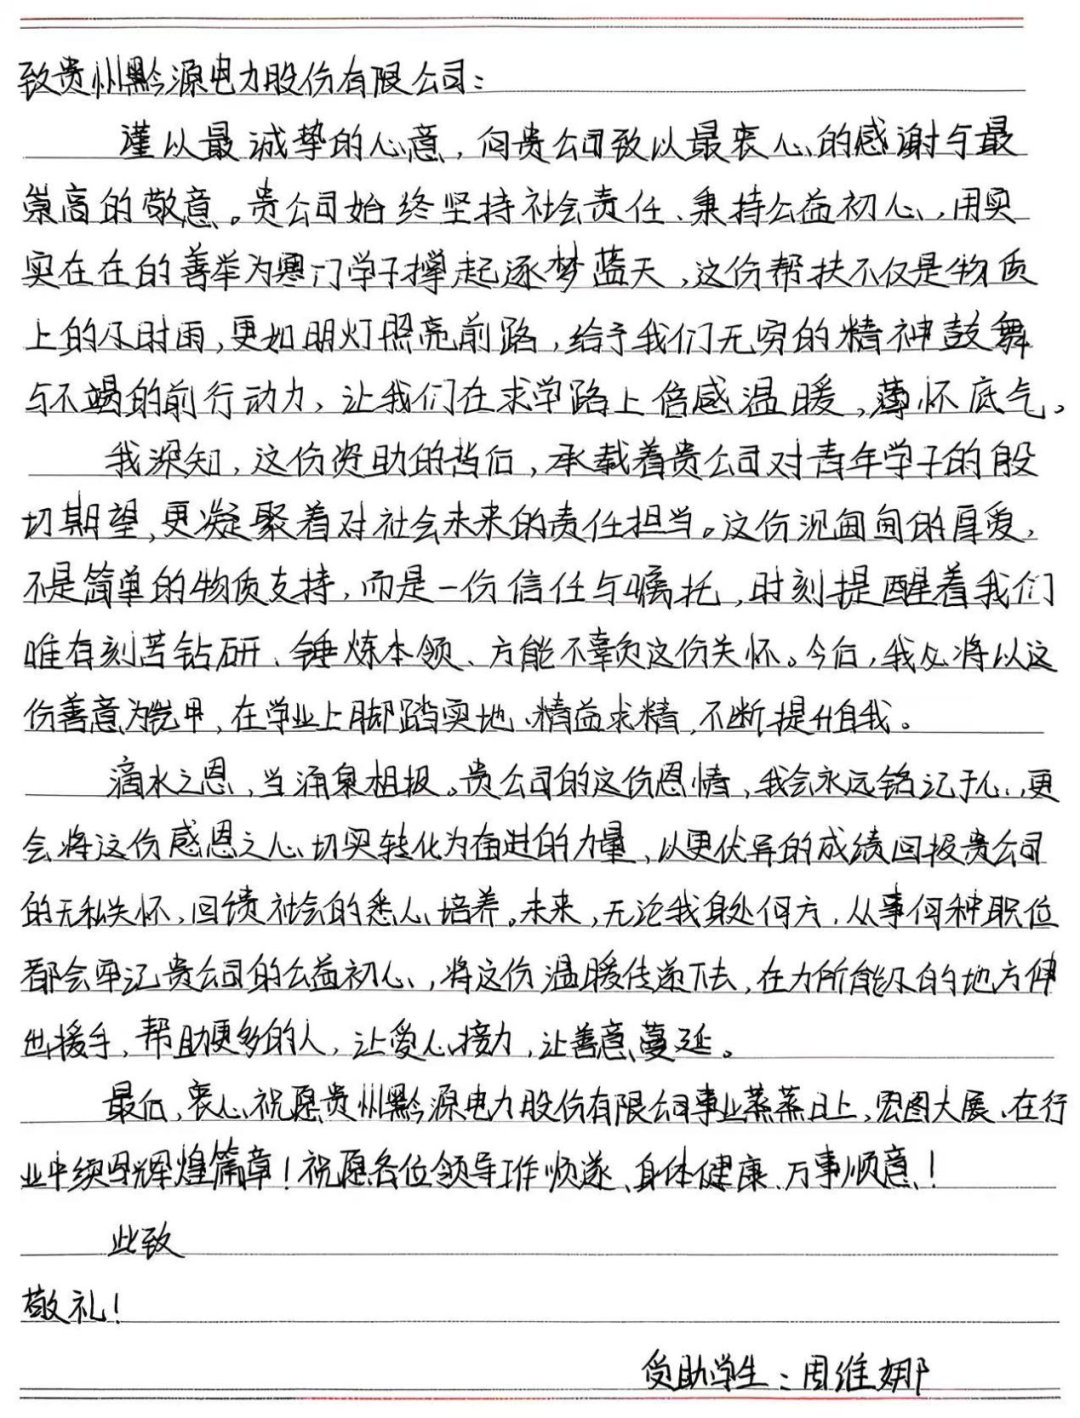 致贵州黔源电力股份有限公司：
谨以最诚挚的心意，向贵公司致以最衷心的感谢与最
崇高的敬意。贵公司始终坚持社会责任、秉持公益初心，用实
实在在的善举为寒门学子撑起逐梦蓝天，这份帮扶不仅是物质
上的及时雨，更如明灯照亮前路，给予我们无穷的精神鼓舞
与不竭的前行动力，让我们在求学路上倍感温暖，满怀底气。
我深知，这份资助的背后，承载着贵公司对青年学子的殷
切期望，更凝聚着对社会未来的责任担当。这份沉甸甸的厚爱，
不是简单的物质支持，而是一份信任与嘱托，时刻提醒着我们
唯有刻苦钻研、锤炼本领、方能不辜负这份关怀。今后，我必将以这
份善意为铠甲，在学业上脚踏实地、精益求精，不断提升自我。
滴水之恩，当涌泉相报。贵公司的这份恩情，我会永远铭记于心，更
会将这份感恩之心切实转化为奋进的力量，以更优异的成绩回报贵公司
的无私关怀，回馈社会的悉心培养。未来，无论我身处何方，从事何种职位
都会牢记贵公司的公益初心，将这份温暖传递下去，在力所能及的地方伸
出援手，帮助更多的人，让爱心接力，让善意蔓延。
最后，衷心祝愿贵州黔源电力股份有限公司事业蒸蒸日上，宏图大展、在行
业中续写辉煌篇章！祝愿各位领导工作顺遂、身体健康、万事顺意！
此致
敬礼！
受助学生：周维娜